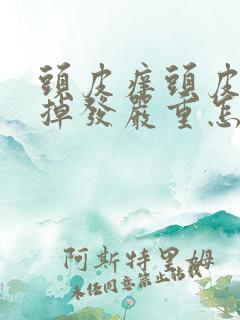 頭皮癢頭皮
掉發嚴重怎
阿斯特里姆
未经同意禁止转载